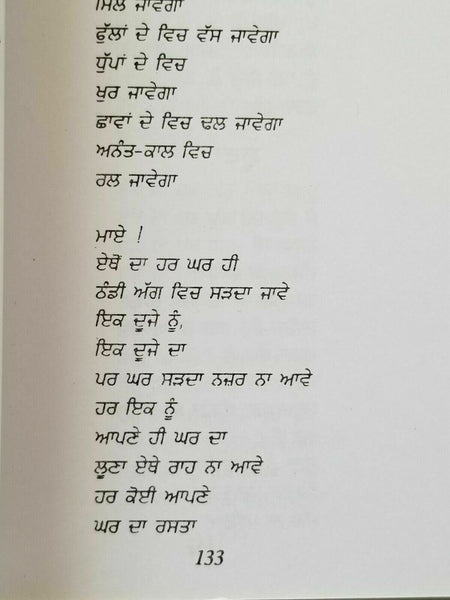 ਮਿਲ ਜਾਵੇਗਾ
ਫੁੱਲਾਂ ਦੇ ਵਿਚ ਵੱਸ ਜਾਵੇਗਾ
ਧੁੱਪਾਂ ਦੇ ਵਿਚ
ਖੁਰ ਜਾਵੇਗਾ
ਛਾਵਾਂ ਦੇ ਵਿਚ ਢਲ ਜਾਵੇਗਾ
ਅਨੰਤ-ਕਾਲ ਵਿਚ
ਰਲ ਜਾਵੇਗਾ
ਮਾਏ !
ਏਥੋਂ ਦਾ ਹਰ ਘਰ ਹੀ
ਠੰਡੀ ਅੱਗ ਵਿਚ ਸੜਦਾ ਜਾਵੇ
ਇਕ ਦੂਜੇ ਨੂੰ,
ਇਕ ਦੂਜੇ ਦਾ
ਪਰ ਘਰ ਸੜਦਾ ਨਜ਼ਰ ਨਾ ਆਵੇ
ਹਰ ਇਕ ਨੂੰ
ਆਪਣੇ ਹੀ ਘਰ ਦਾ
ਲੂਣਾ ਏਥੇ ਰਾਹ ਨਾ ਆਵੇ
ਹਰ ਕੋਈ ਆਪਣੇ
ਘਰ ਦਾ ਰਸਤਾ
133